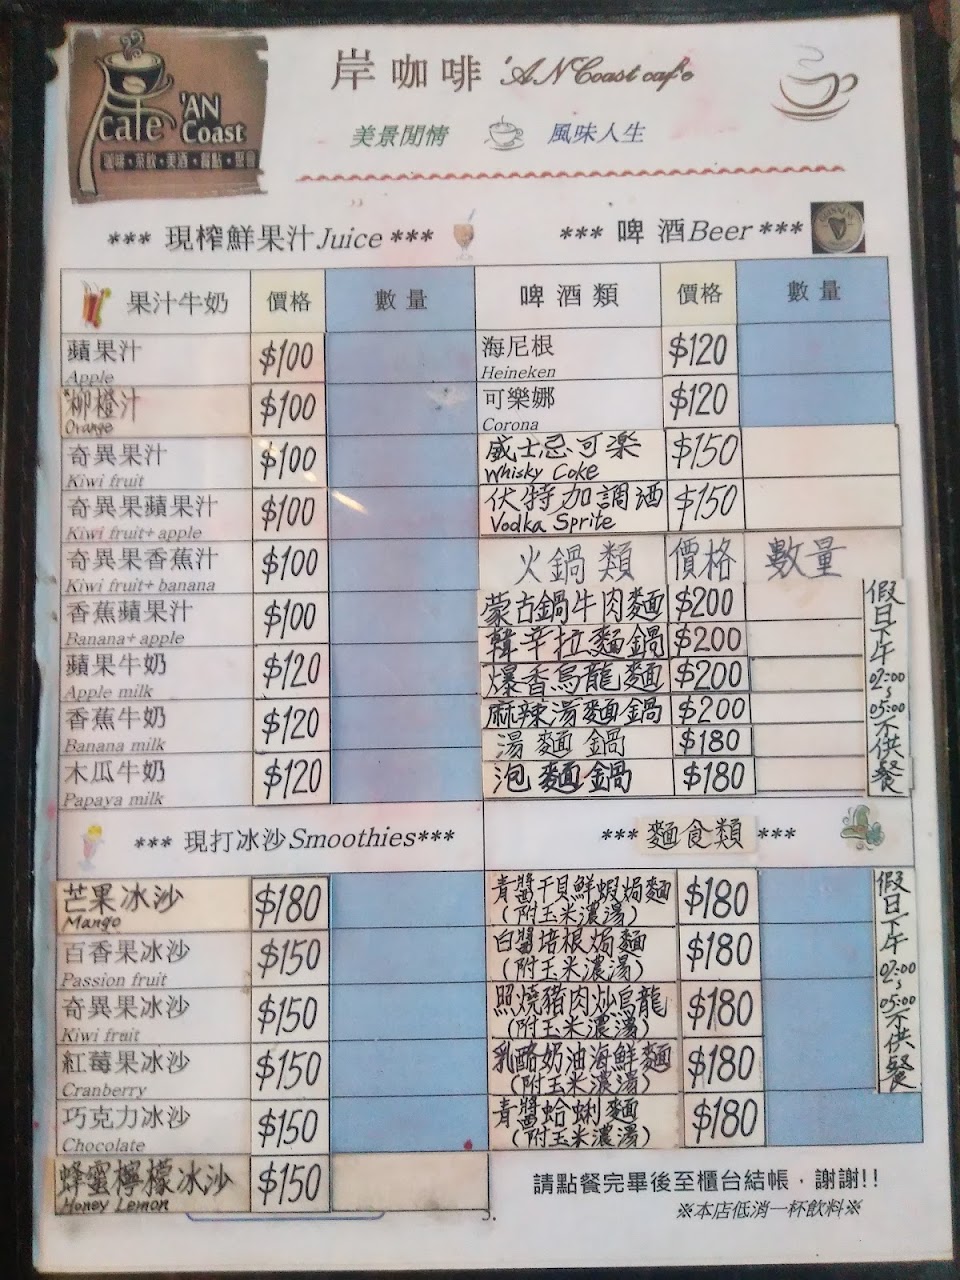 cafe 'AN Coast
咖啡•茶飲•美酒•餐點•聚會
岸咖啡 'AN Coast cafe
美景閒情 風味人生
*** 現榨鮮果汁Juice ***
果汁牛奶 價格 數量
蘋果汁 $100
Apple
柳橙汁 $100
Orange
奇異果汁 $100
Kiwi fruit
奇異果蘋果汁 $100
Kiwi fruit+ apple
奇異果香蕉汁 $100
Kiwi fruit+ banana
香蕉蘋果汁 $100
Banana+ apple
蘋果牛奶 $120
Apple milk
香蕉牛奶 $120
Banana milk
木瓜牛奶 $120
Papaya milk
*** 現打冰沙Smoothies***
芒果冰沙 $180
Mango
百香果冰沙 $150
Passion fruit
奇異果冰沙 $150
Kiwi fruit
紅莓果冰沙 $150
Cranberry
巧克力冰沙 $150
Chocolate
蜂蜜檸檬冰沙 $150
Honey Lemon
*** 啤酒Beer ***
GUINNESS
啤酒類 價格 數量
海尼根 $120
Heineken
可樂娜 $120
Corona
威士忌可樂 $150
Whisky Coke
伏特加調酒 $150
Vodka Sprite
火鍋類 價格 數量
蒙古鍋牛肉麵 $200
韓辛拉麵鍋 $200
爆香烏龍麵 $200
麻辣湯麵鍋 $200
湯麵鍋 $180
泡麵鍋 $180
假日下午02:00~05:00不供餐
*** 麵食類 ***
青醬干貝鮮蝦焗麵 $180
(附玉米濃湯)
白醬培根焗麵 $180
(附玉米濃湯)
照燒豬肉炒烏龍 $180
(附玉米濃湯)
乳酪奶油海鮮麵 $180
(附玉米濃湯)
青醬蛤蜊麵 $180
(附玉米濃湯)
假日下午02:00~05:00不供餐
請點餐完畢後至櫃台結帳，謝謝!!
※本店低消一杯飲料※
3.